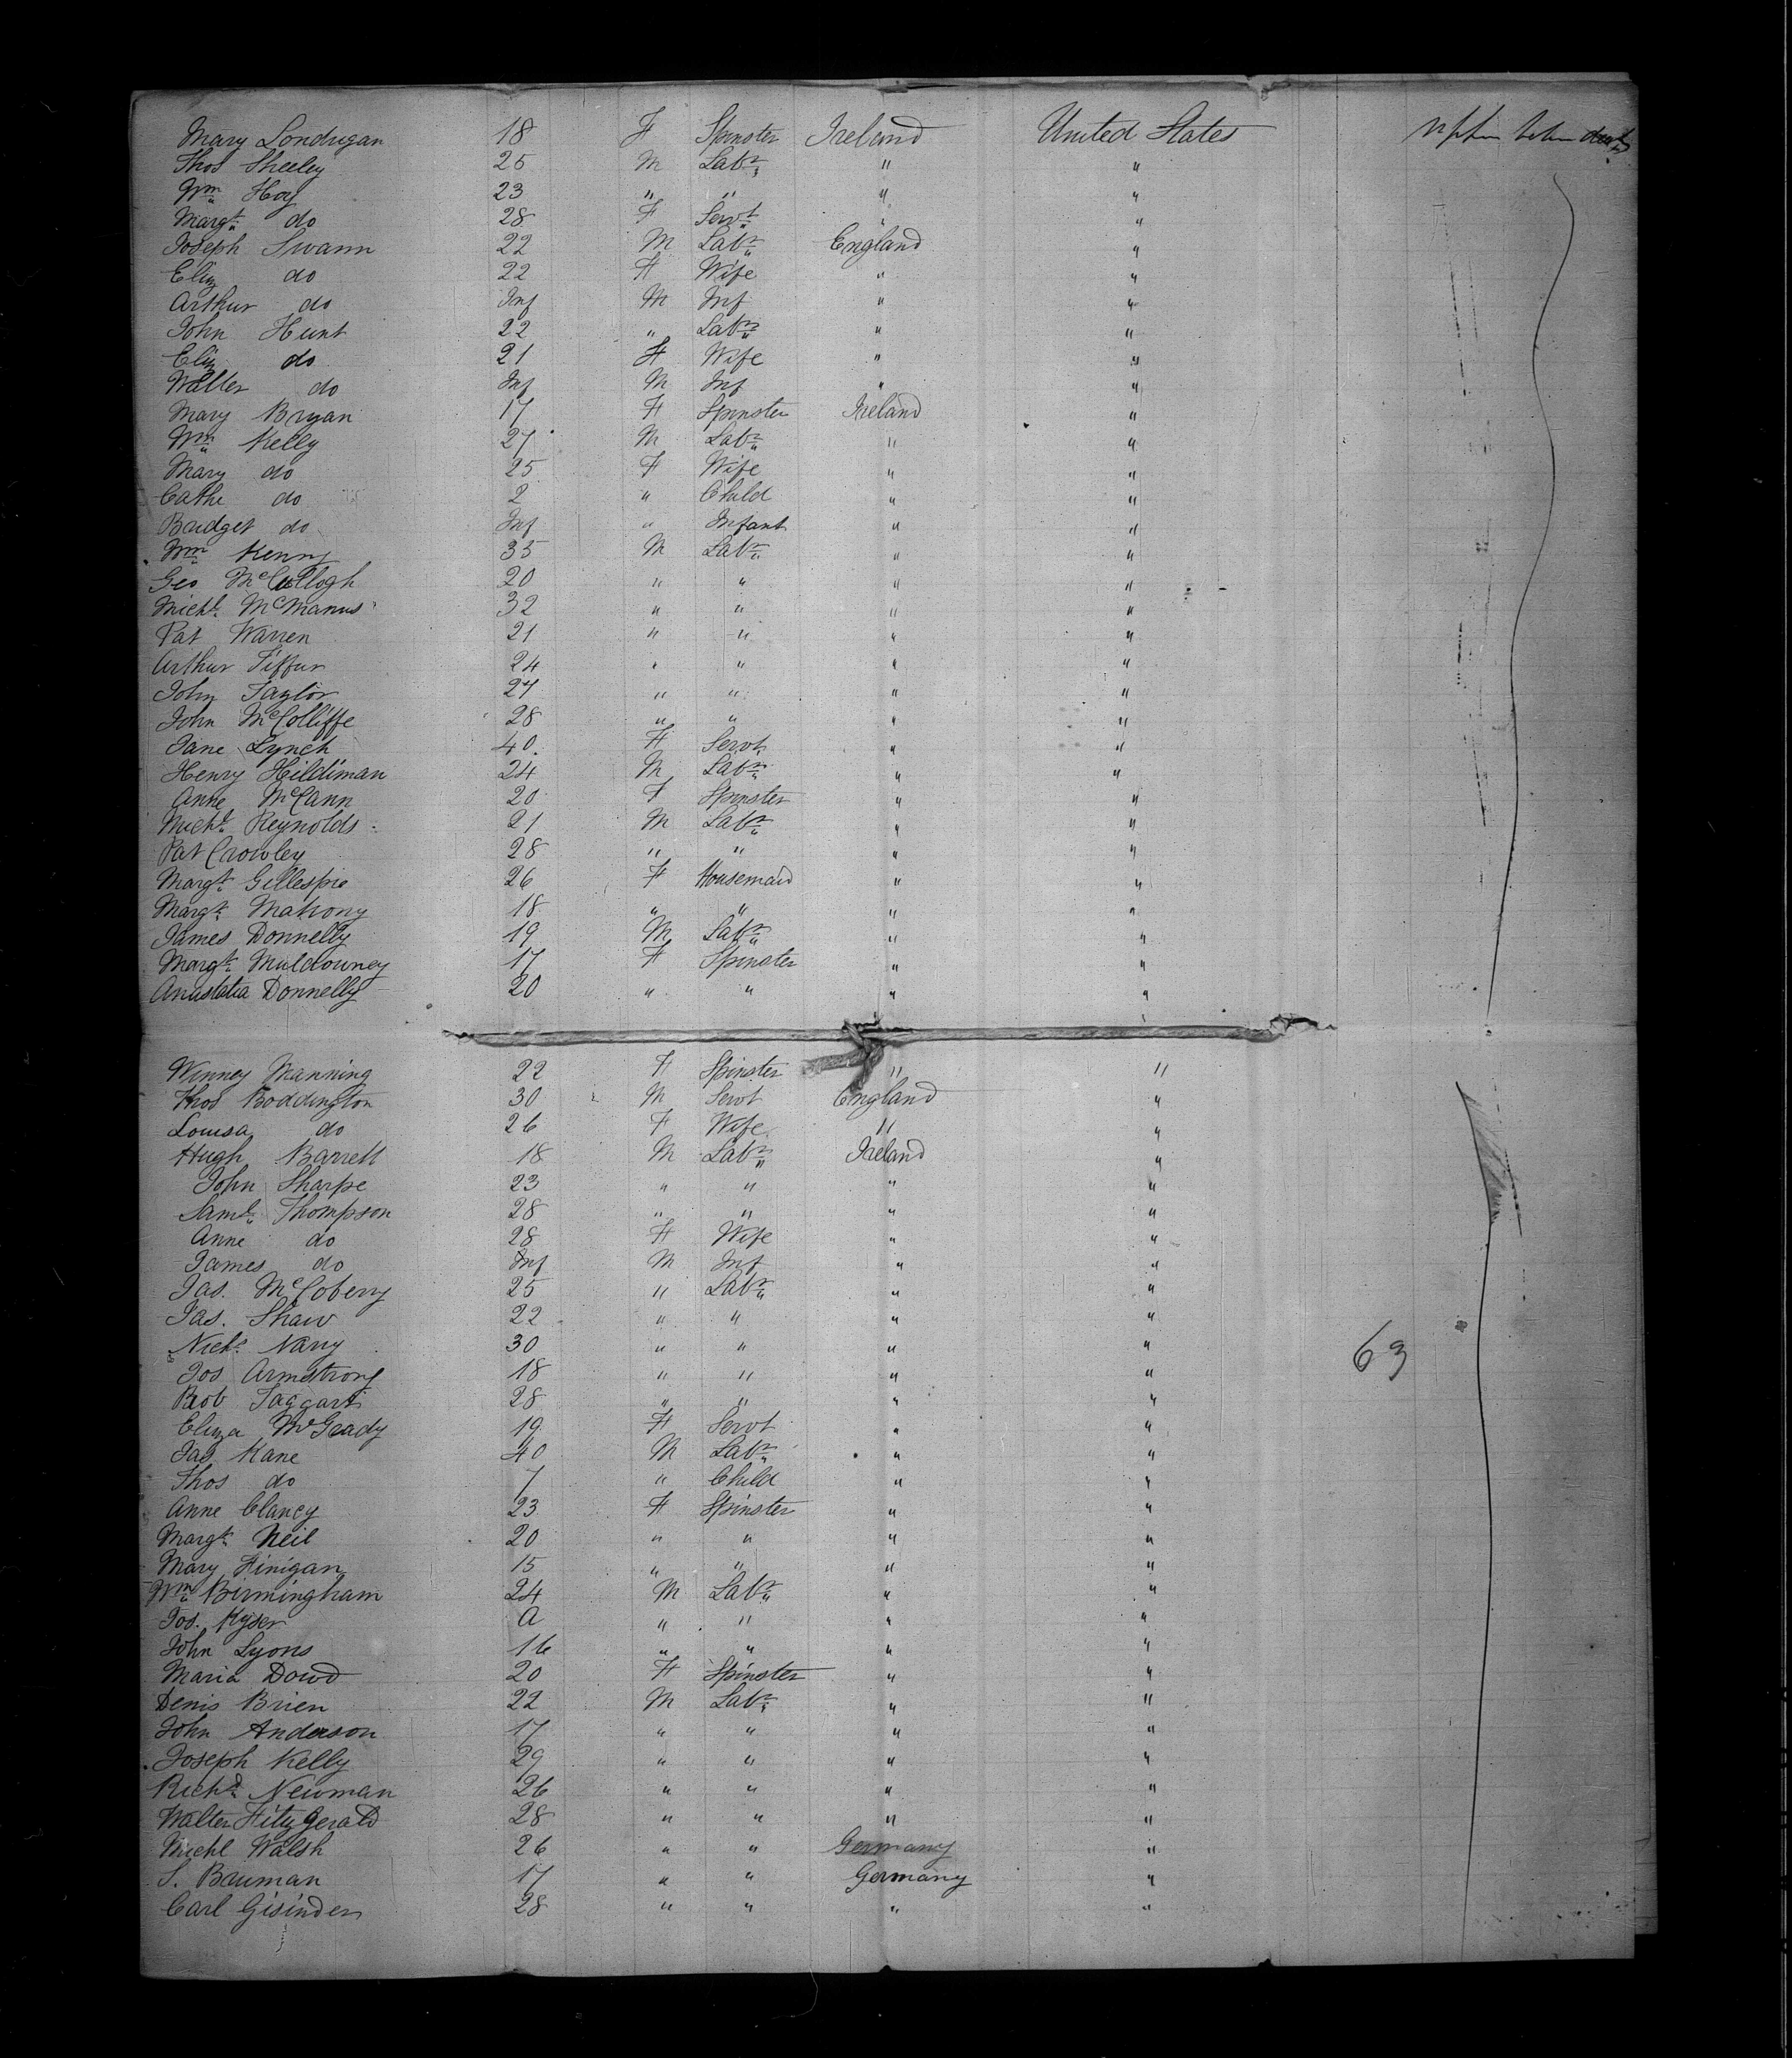 Mary Londrigan 18 F Spinster Ireland United States
Thos Sheeley 25 M Labr " "
Wm Hoy 23 " " " "
Margt do 28 F Servt " "
Joseph Swann 22 M Labr England "
Eliz do 22 F Wife " "
Arthur do Inf M Inf " "
John Hunt 22 " Labr " "
Eliz do 21 F Wife " "
Walter do Inf M Inf " "
Mary Bryan 17 F Spinster Ireland "
Wm Kelly 27 M Labr " "
Mary do 25 F Wife " "
Cathe do 2 " Child " "
Bridget do Inf " Infant " "
Wm Kenny 35 M Labr " "
Geo McCullogh 20 " " " "
Michl McManus 32 " " " "
Pat Warren 21 " " " "
Arthur 24 " " " "
John Taylor 27 " " " "
John McColliffe 28 " " " "
Jane Lynch 40 F Servt " "
Henry Hildiman 24 M Labr " "
Anne McCann 20 F Spinster " "
Michl Reynolds 21 M Labr " "
Pat Crowley 28 " " " "
Margt Gillespie 26 F Housemaid " "
Margt Mahony 18 " " " "
James Donnelly 19 M Labr " "
Margt Muldowney 17 F Spinster " "
Anastatia Donnelly 20 " " " "
Winney Manning 22 F Spinster " "
Thos Boddington 30 M Servt England "
Louisa do 26 F Wife " "
Hugh Barrett 18 M Labr Ireland "
John Sharpe 23 " " " "
Saml Thompson 28 " " " "
Anne do 28 F Wife " "
James do Inf M Inf " "
Jas. McCobery 25 " Labr " "
Jas. Shaw 22 " " " "
Nichs Nary 30 " " " " 63
Jos Armstrong 18 " " " "
Rob Taggart 28 " " " "
Eliza McGrady 19 F Servt " "
Jas. Kane 40 M Labr " "
Thos do 7 " Child " "
Anne Clancy 23 F Spinster " "
Margt Neil 20 " " " "
Mary Finigan 15 " " " "
Wm Birmingham 24 M Labr " "
Jos. Kyser A " " " "
John Lyons 16 " " " "
Maria Dowd 20 F Spinster " "
Denis Brien 22 M Labr " "
John Anderson 17 " " " "
Joseph Kelly 29 " " " "
Richd Newman 26 " " " "
Walter Fitzgerald 28 " " " "
Michl Walsh 26 " " Germany "
S. Bauman 17 " " Germany "
Carl Gisinder 28 " " " "